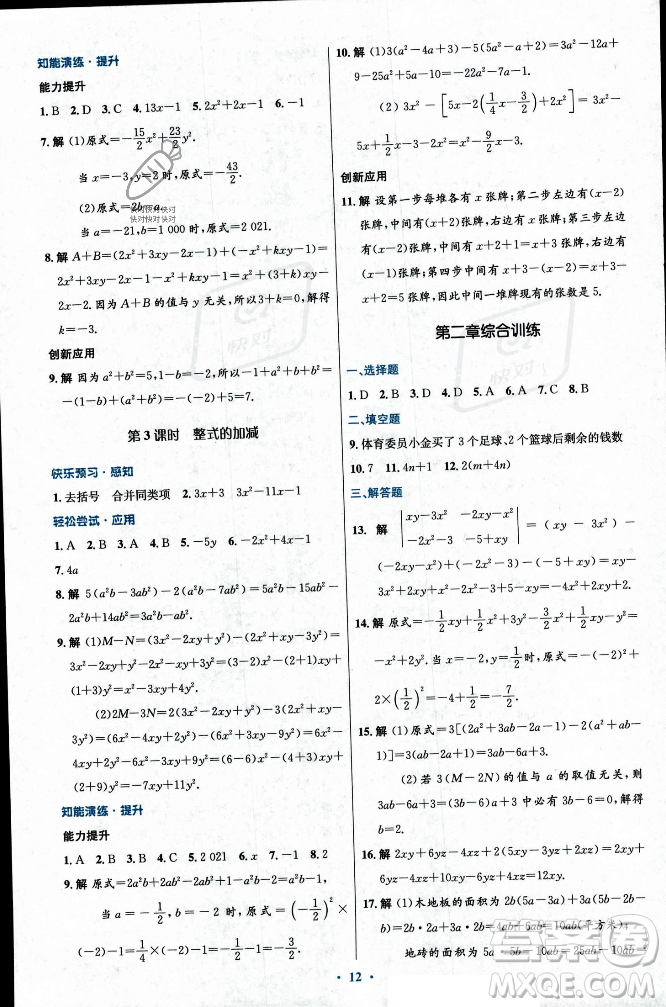 知能演练·提升
能力提升
1. B 2. D 3. C 4. 13x－1 5. 2x²＋2x－1 6. －1
7. 解 (1)原式＝－15/2x²＋23/2y².
当 x＝－3,y＝2 时,原式＝－43/2.
(2)原式＝2b－a.
当 a＝－21,b＝1 000 时,原式＝2 021.
8. 解 A＋B＝(2x²＋3xy－2x－1)＋(－x²＋kxy－1)＝
2x²＋3xy－2x－1－x²＋kxy－1＝x²＋(k＋3)xy－
2x－2. 因为 A＋B 的值与 y 无关,所以 k＋3＝0,解得
k＝－3.
创新应用
9. 解 因为 a²＋b²＝5,1－b＝－2,所以－1＋a²＋b＋b²＝
－(1－b)＋(a²＋b²)＝－(－2)＋5＝7.
第 3 课时 整式的加减
快乐预习·感知
1. 去括号 合并同类项 2. 3x＋3 3x²－2x－1
轻松尝试·应用
1. A 2. B 3. B 4. A 5. －5y 6. －2x²＋4x－1
7. 4a
8. 解 5(a²b－3ab²)－2(a²b－7ab²)＝5a²b－15ab²－
2a²b＋14ab²＝3a²b－ab².
9. 解 (1)M－N＝(3x²－2xy＋y²)－(2x²＋xy－3y²)＝
3x²－2xy＋y²－2x²－xy＋3y²＝(3x²－2x²)－(2xy＋xy)＋
(1＋3)y²＝x²－3xy＋4y².
(2)2M－3N＝2(3x²－2xy＋y²)－3(2x²＋xy－
3y²)＝(6x²－4xy＋2y²)－(6x²＋3xy－9y²)＝6x²－
4xy＋2y²－6x²－3xy＋9y²＝(6x²－6x²)－(4xy＋3xy)＋
(2y²＋9y²)＝－7xy＋11y².
知能演练·提升
能力提升
1. A 2. B 3. B 4. C 5. 2 021 6. x 7. －1 8. 2
9. 解 原式＝2a²b＋2ab²－2a²b＋2－2ab²－2＋a²b＝a²b.
当 a＝－1/2,b＝－1 时,原式＝(－1/2)²×
(－2)－1＝1/4×(－2)－1＝－1/2－1＝－3/2.
10. 解 (1)3(a²－4a＋3)－5(5a²－a＋2)＝3a²－12a
＋9－25a²＋5a－10＝－22a²－7a－1.
(2) 3x²－[5x－2(1/4x－3/2)＋2x²]＝3x²－
5x＋2(1/4x－3/2)－2x²＝x²－9/2x－3.
创新应用
11. 解 设第一步每堆各有 x 张牌;第二步左边有(x－2)
张牌,中间有(x＋2)张牌,右边有 x 张牌;第三步左边有
(x－2)张牌,中间有(x＋3)张牌,右边有(x－1)
张牌;第四步中间有(x＋3)－(x－2)＝x＋3－x＋2＝
5(张)牌. 因此,最后中间一堆牌现有的张数是 5.
第二章综合训练
一、选择题
1. D 2. B 3. C 4. D 5. A 6. A 7. C 8. B
二、填空题
9. 体育委员小金买了 3 个足球、2 个篮球后剩余的钱数
10. 7 11. 4n＋1 12. 2(m＋4n)
三、解答题
13. 解 |xy－3x² －2xy－x²|
|－2x²－3 －5＋xy| ＝ (xy － 3x²) －
(－2xy－x²)－(－2x²－3)＋(－5＋xy)＝xy－
3x²＋2xy＋x²＋2x²＋3－5＋xy＝4xy－2.
14. 解 原式＝－1/2xy＋1/2x²－1/2＋3/2xy＋3/2x²＋
1/2＝xy＋2x². 当 x＝1/2,y＝－8 时,原式＝1/2×(－8)＋
2×(1/2)²＝－4＋1/2＝－7/2.
15. 解 (1)原式＝3[(2a²＋3ab－2a－1)－2(a²＋ab－
1)]＝3(ab－2a＋1)＝3ab－6a＋3.
(2) 若 3(M－2N) 的值与 a 的取值无关,则
3ab－6a＋3＝(3b－6)a＋3 中必有 3b－6＝0. 所以
b＝2.
16. 解 2xy＋6yz－4xz＋2(2xy－5yz＋xz)＝2xy＋
6yz－4xz＋4xy－10yz＋2xz＝6xy－4yz－2xz.
17. 解 (1)木地板的面积为 2b(5a－3a)＋3a(5b－2b－
b)＝2b·2a＋3a·2b＝4ab＋6ab＝10ab(平方米);
地砖的面积为 5a·5b－10ab＝25ab－10ab＝
12
快对快对快对
快对快对快对
快对
答案圈
MXQE.COM